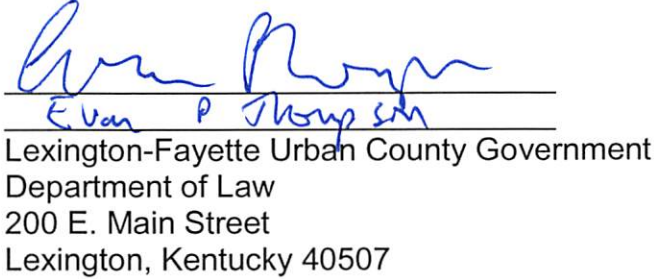 Evan P Thompson
Lexington-Fayette Urban County Government
Department of Law
200 E. Main Street
Lexington, Kentucky 40507